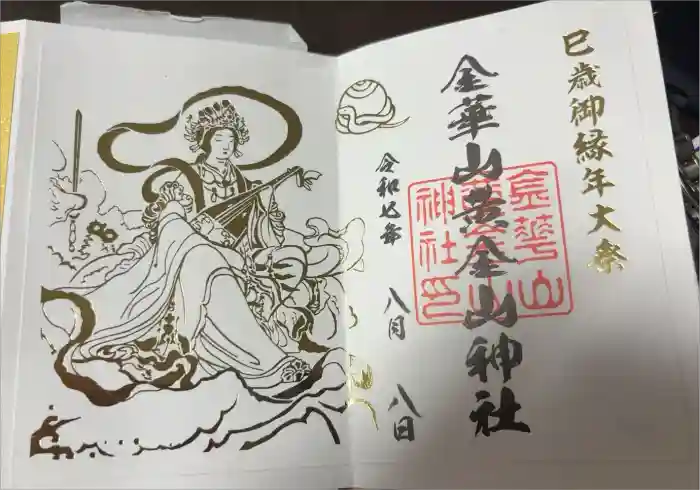 巳歳御縁年大祭
金華山黄金山神社
金華山黄金山神社印
令和七年 八月 八日